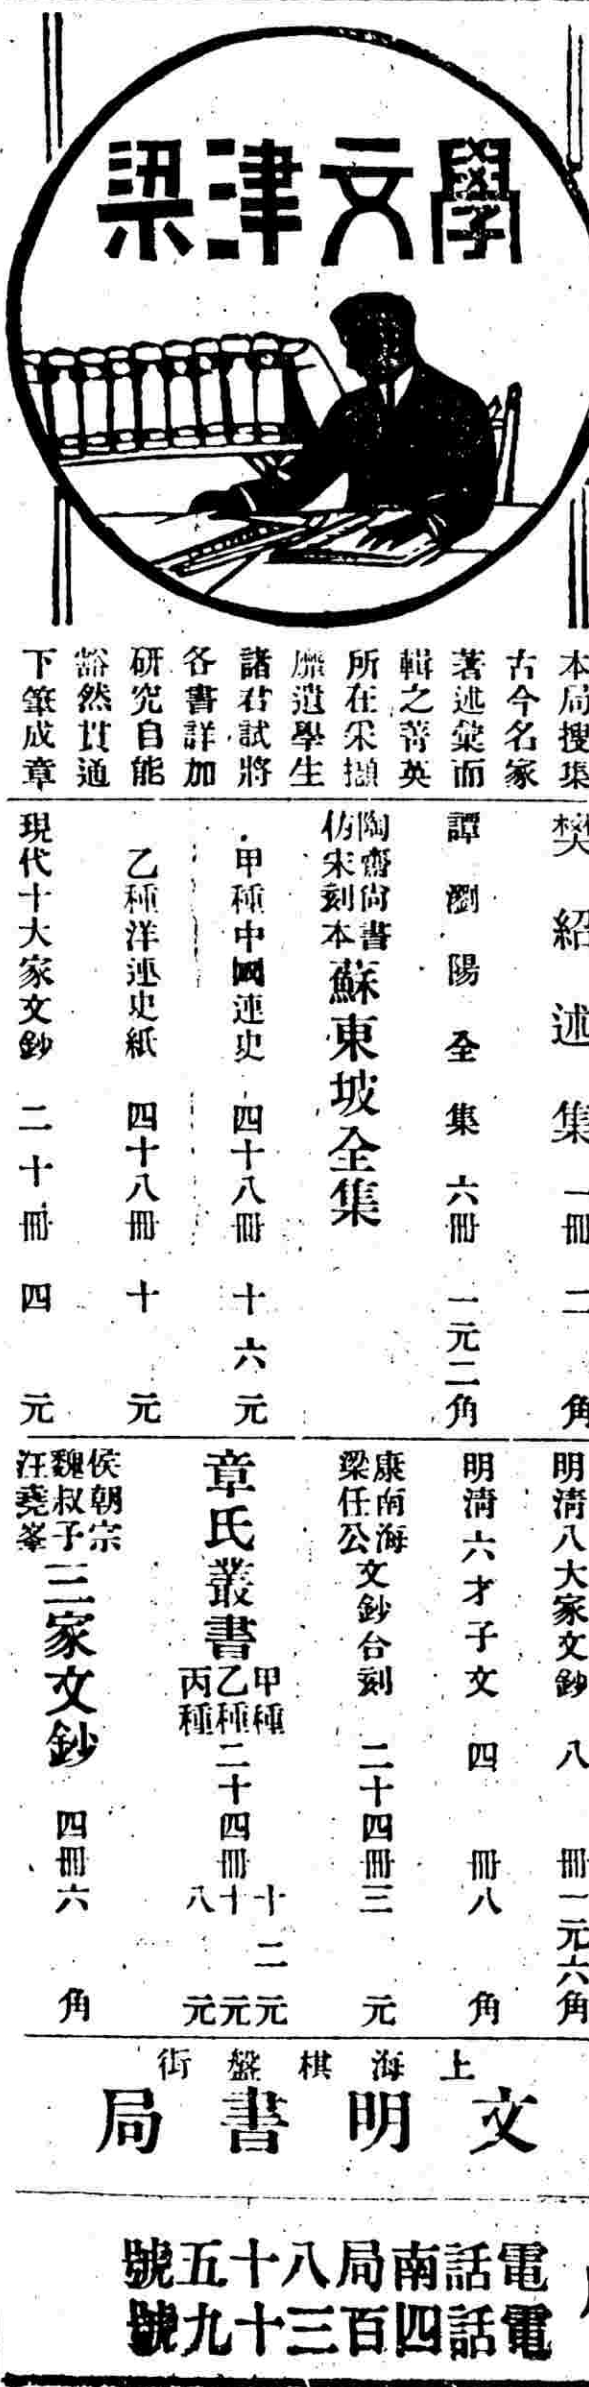 學文津梁
本局搜集
古今名家
著述彙而
輯之菁英
所在采擷
靡遺學生
諸君試將
各書詳加
研究自能
豁然貫通
下筆成章
樊紹述集 一冊 二角
譚瀏陽全集 六冊 一元二角
陶齋尙書
仿宋刻本
蘇東坡全集
甲種中國連史 四十八冊 十六元
乙種洋連史紙 四十八冊 十元
現代十大家文鈔 二十冊 四元
明清八大家文鈔 八冊 一元六角
明清六才子文 四冊 八角
康南海
梁任公
文鈔合刻 二十四冊 三元
章氏叢書
甲種
乙種
丙種
二十四冊
十二元
十元
八元
侯朝宗
魏叔子
汪堯峯
三家文鈔 四冊 六角
上海棋盤街
文明書局
電話南局八十五號
電話四百三十九號